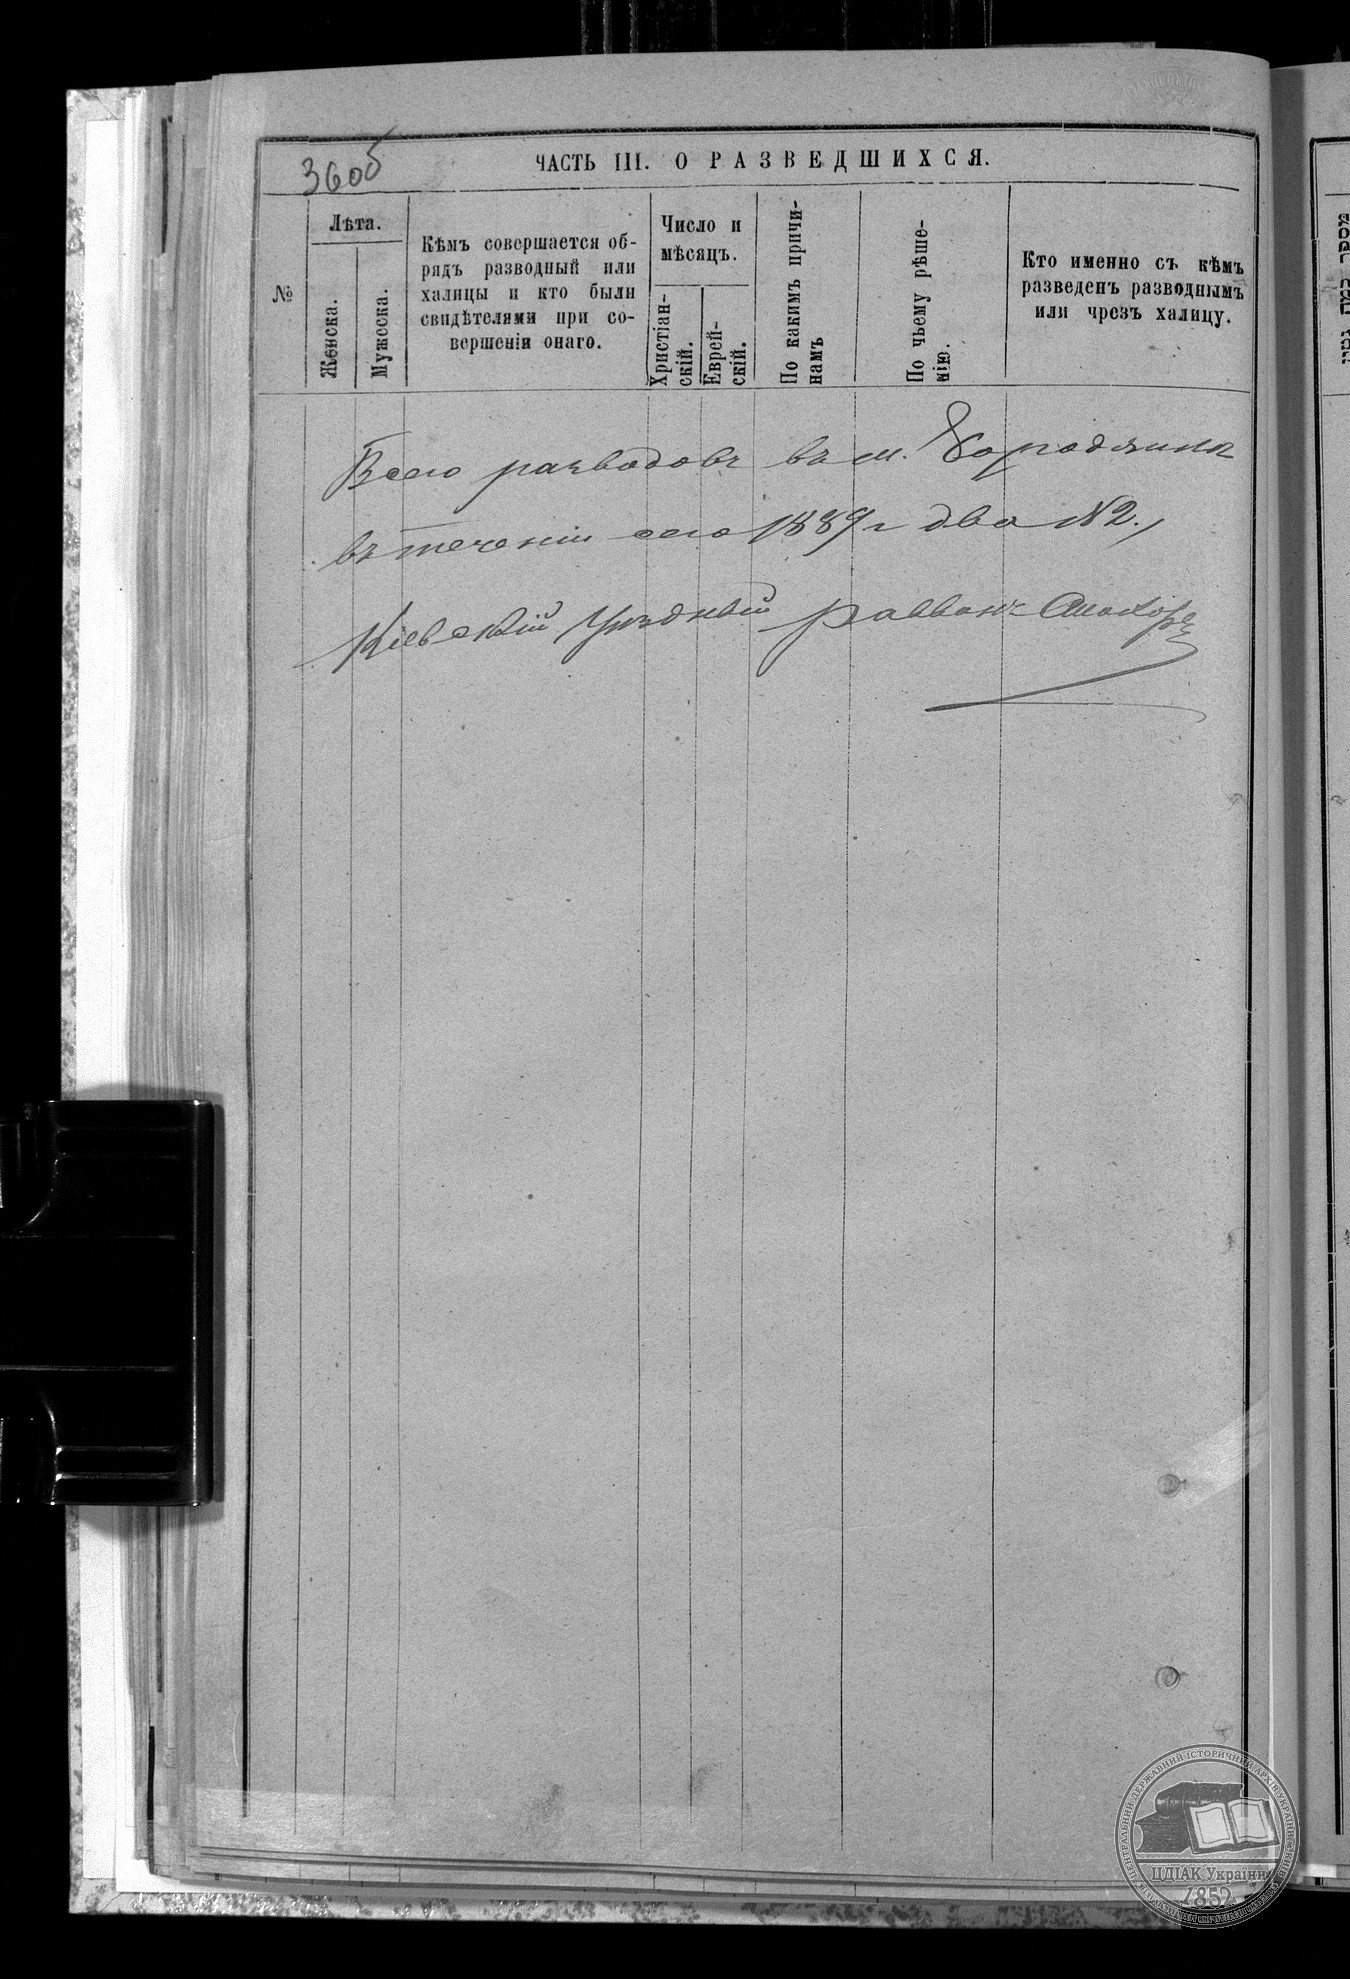 360б
ЧАСТЬ III. О РАЗВЕДШИХСЯ.
№
Лѣта.
Женска.
Мужеска.
Кѣмъ совершается об-
рядъ разводный или
халицы и кто были
свидѣтелями при со-
вершеніи онаго.
Число и
мѣсяцъ.
Христіан-
скій.
Еврей-
скій.
По какимъ причи-
намъ
По чьему рѣше-
нію.
Кто именно съ кѣмъ
разведенъ разводнымъ
или чрезъ халицу.
Всего разводовъ въ м. Бородянка
въ теченіи сего 1889 г два №2.
Кіевскій Уѣздный раввинъ
ЦЕНТРАЛЬНИЙ ДЕРЖАВНИЙ ІСТОРИЧНИЙ АРХІВ УКРАЇНИ
ЦДІАК України
1852